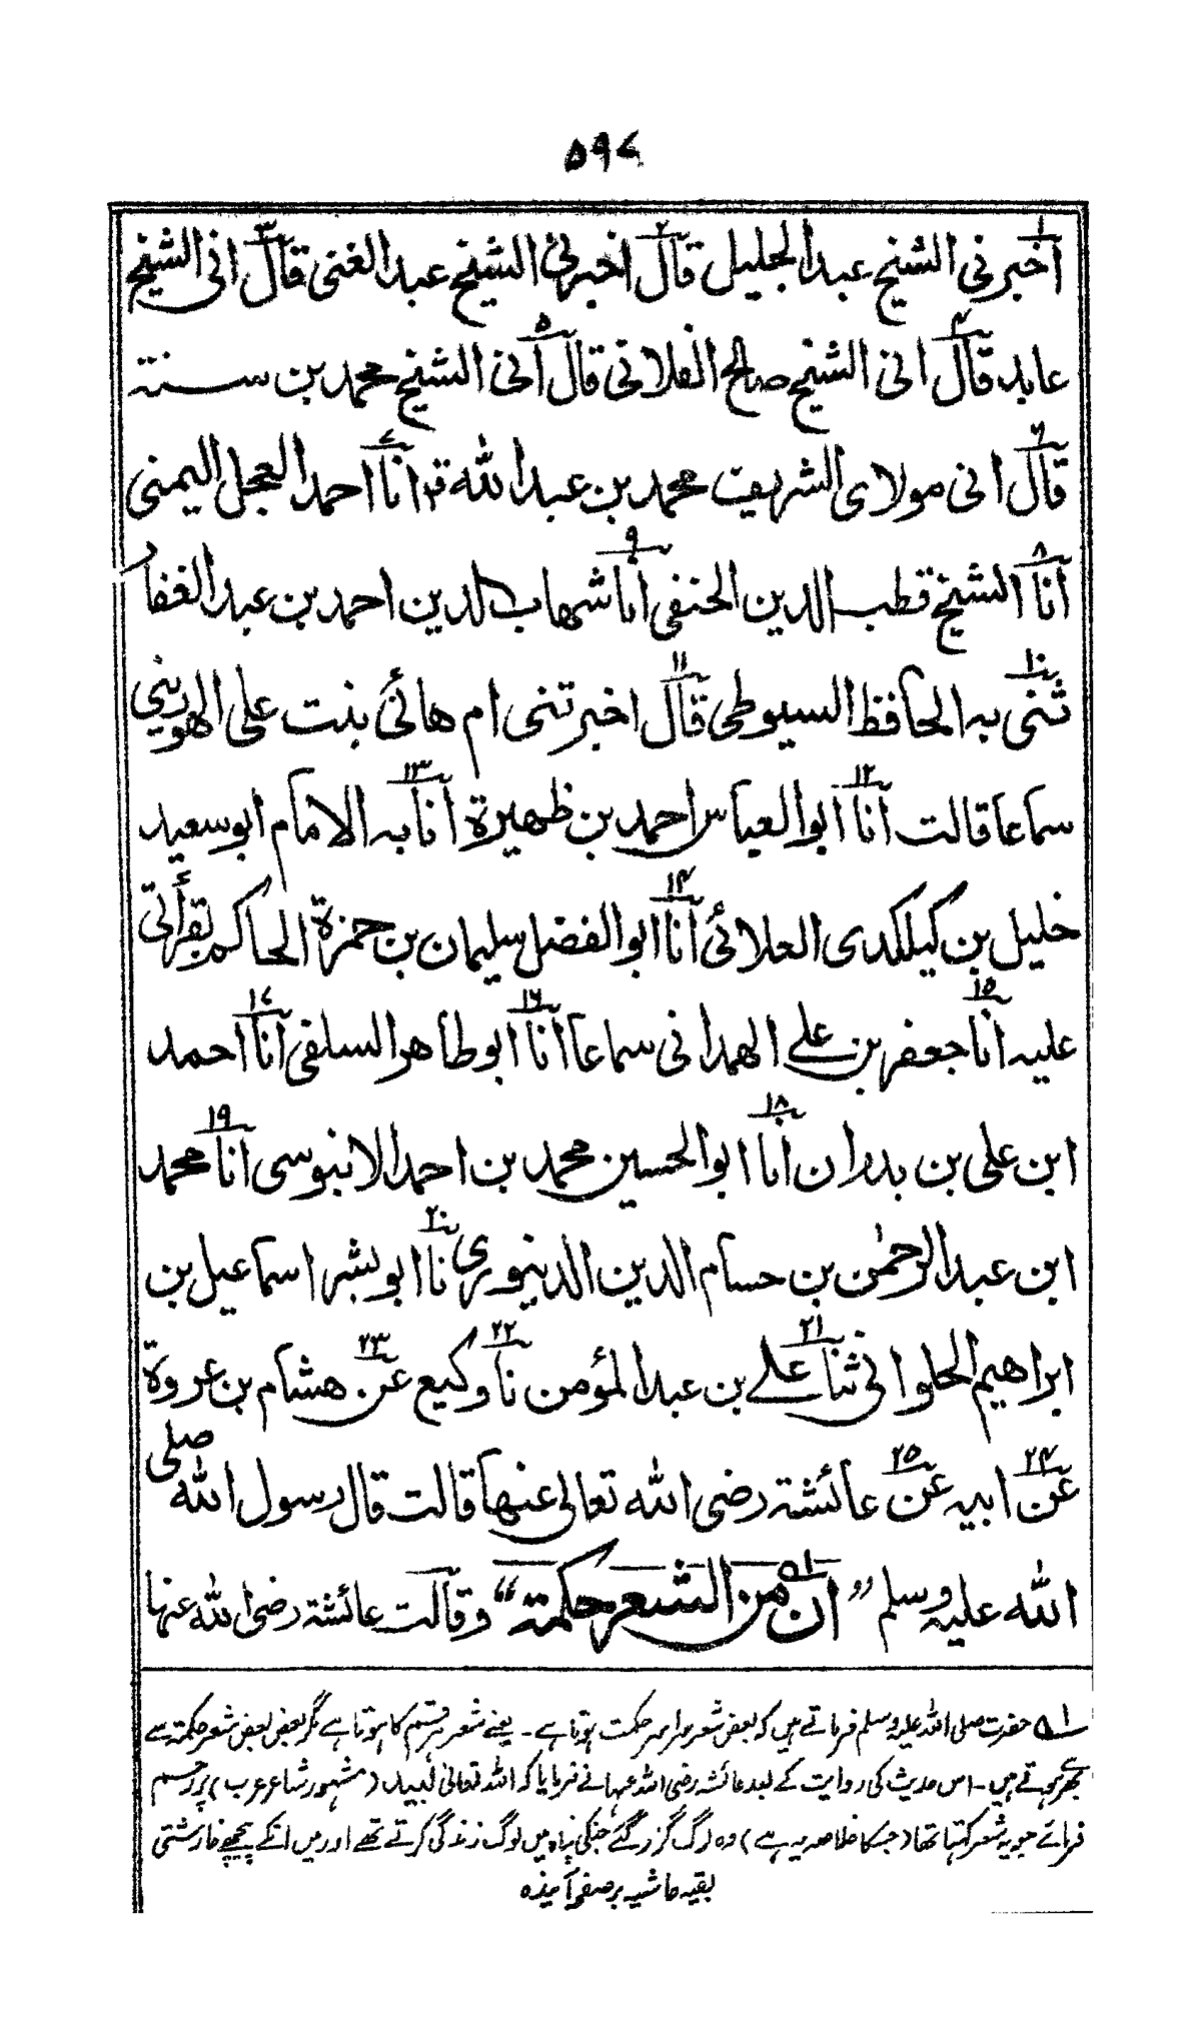 ۵۹۷
اخبرني الشيخ عبد الجليل قال اخبرني الشيخ عبد الغنى قال انى الشيخ
عابد قال انى الشيخ صالح الفلانى قال انى الشيخ محمد بن سنته
قال انى مولاى الشريف محمد بن عبد الله قرأ انا احمد العجل اليمنى
انا الشيخ قطب الدين الحنفى انا شهاب الدين احمد بن عبد الغفار
ثنى به الحافظ السيوطى قال اخبرتنى ام هانئ بنت على الهوريني
سماعا قالت انا ابو العباس احمد بن ظهيرة انا به الامام ابو سعيد
خليل بن كيلكدى العلائى انا ابو الفضل سليمان بن حمزة الحاكم بقرأتى
عليه انا جعفر بن علے الهمدانى سماعا انا ابو طاهر السلفى انا احمد
ابن على بن بدران انا ابو الحسين محمد بن احمد الانبوسى انا محمد
ابن عبد الرحمٰن بن حسام الدين الدينورى نا ابو بشر اسماعيل بن
ابراهيم الحلوانى ثنا علے بن عبد المؤمن نا وكيع عن هشام بن عروة
عن ابيه عن عائشة رضى الله تعالى عنها قالت قال رسول الله صلى
الله عليه وسلم ”ان من الشعر حكمة“ وقالت عائشة رضى الله عنها
لے حضرت صلی اللہ علیہ وسلم فرماتے ہیں کہ بعض شعر سراسر حکمت ہوتا ہے۔ یعنے شعر ہر قسم کا ہوتا ہے مگر بعض بعض شعر حکمۃ سے
بھرے ہوتے ہیں۔ اس حدیث کی روایت کے بعد عائشہ رضی اللہ عنہا نے فرمایا کہ اللہ تعالیٰ لبید (مشہور شاعر عرب) پر رحم
فرمائے جو یہ شعر کہتا تھا (جسکا خلاصہ یہ ہے) وہ لوگ گزر گئے جنکی پناہ میں لوگ زندگی کرتے تھے اور میں انکے پیچھے خارشتی
بقیہ حاشیہ بر صفحہ آئندہ